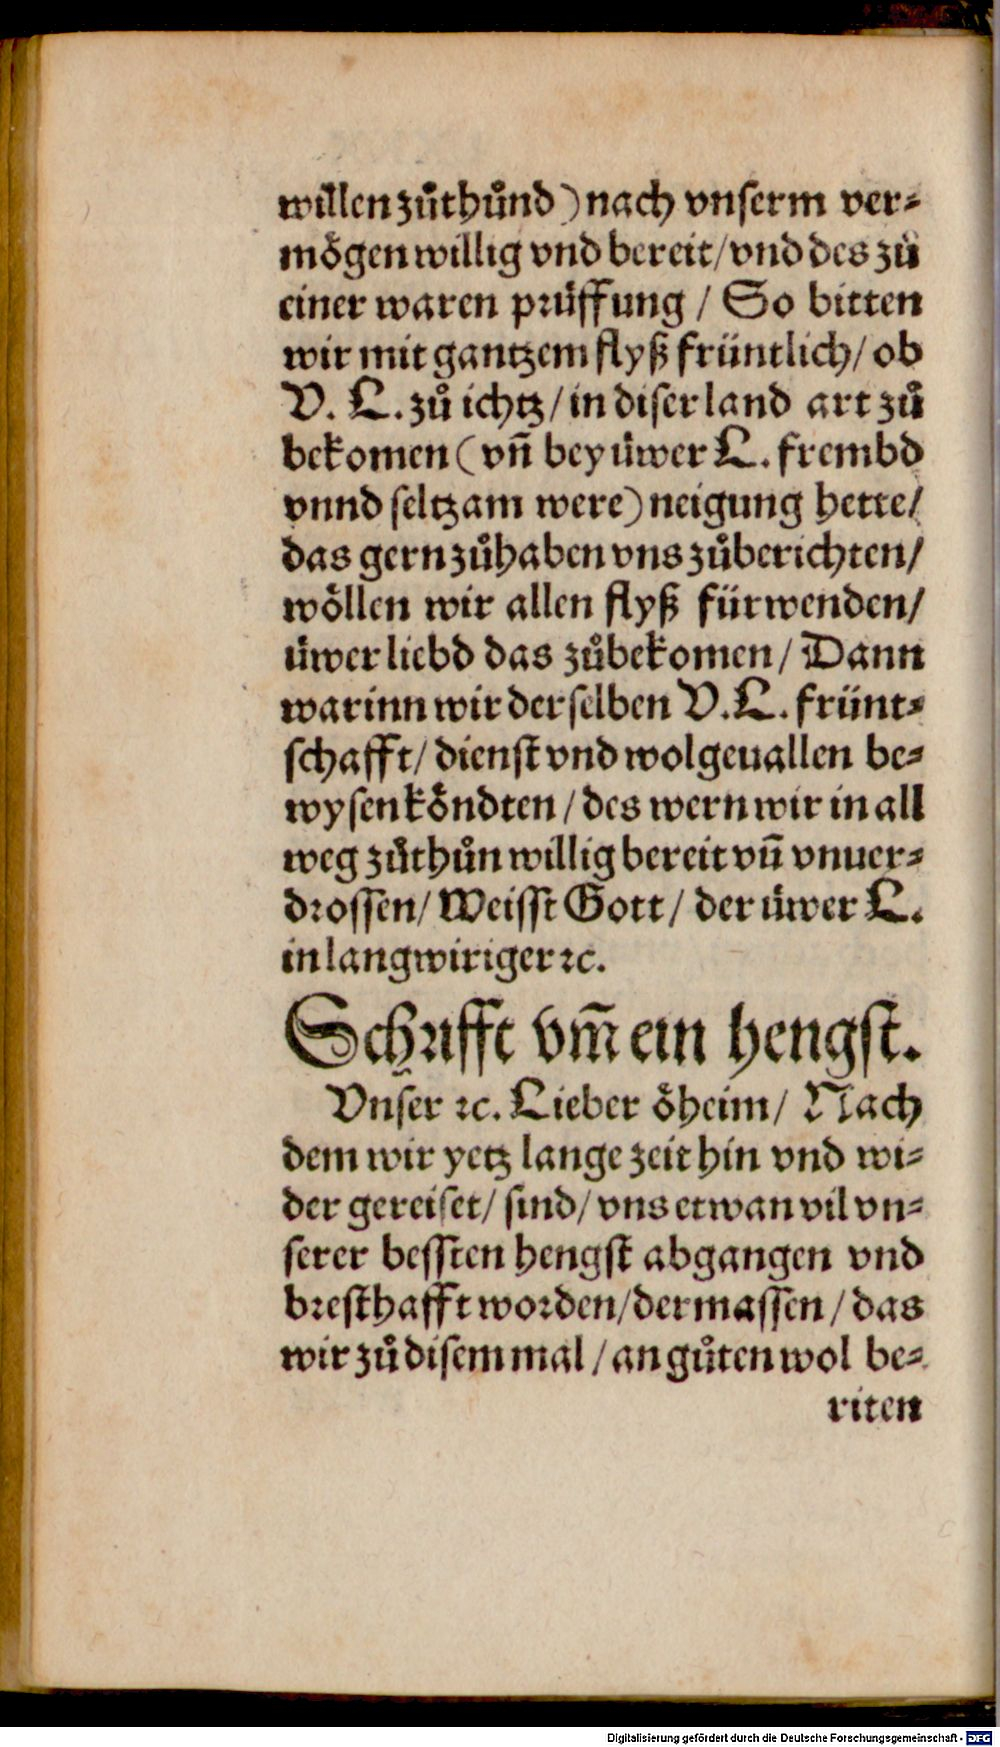 willen zuͦthuͦnd) nach vnserm ver⸗
moͤgen willig vnd bereit / vnd des zuͦ
einer waren pruͤffung / So bitten
wir mit gantzem flyß fruͤntlich / ob
V. L. zuͦ ichtz / in diser land art zuͦ
bekomen (vñ bey uͤwer L. frembd
vnnd seltzam were) neigung hette /
das gern zuͦhaben vns zuͦberichten /
woͤllen wir allen flyß fürwenden /
uͤwer liebd das zuͦbekomen / Dann
warinn wir der selben V. L. früntt⸗
schafft / dienst vnd wolgeuallen be⸗
wysen koͤndten / des wern wir in all
weg zuͦthuͦn willig bereit vñ vnuer⸗
drossen / Weisst Gott / der uͤwer L.
in langwiriger ꝛc.
Schrifft vm̃ ein hengst.
Vnser ꝛc. Lieber oͤheim / Nach
dem wir yetz lange zeit hin vnd wi⸗
der gereiset / sind / vns etwan vil vn⸗
serer bessten hengst abgangen vnd
bresthafft worden / dermassen / das
wir zuͦ disem mal / an guͦten wol be⸗
riten
Digitalisierung gefördert durch die Deutsche Forschungsgemeinschaft - DFG